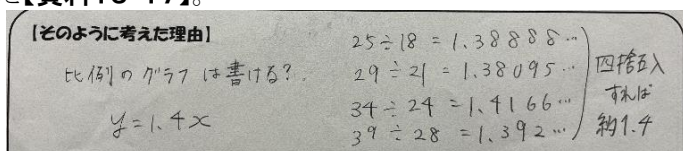 【資料16-17】。
【そのように考えた理由】
比例のグラフは書ける?
y=1.4x
25÷18 = 1.38888…
29÷21 = 1.38095…
34÷24 = 1.4166…
39÷28 = 1.392…
四捨五入
すれば
約1.4